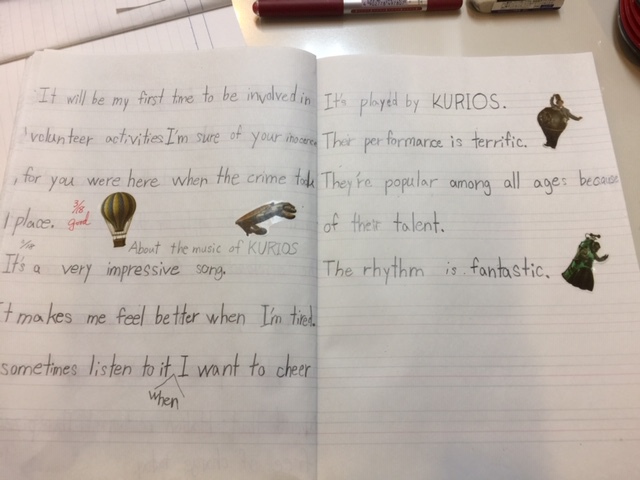 It will be my first time to be involved in
volunteer activities I'm sure of your
, for you were here when the crime took
place.
3/18
good
3/18
About the music of KURIOS
It's a very impressive song.
It makes me feel better when I'm tired.
sometimes listen to it, I want to cheer
when
It's played by KURIOS.
Their performance is terrific.
They're popular among all ages because
of their talent.
The rhythm is fantastic.